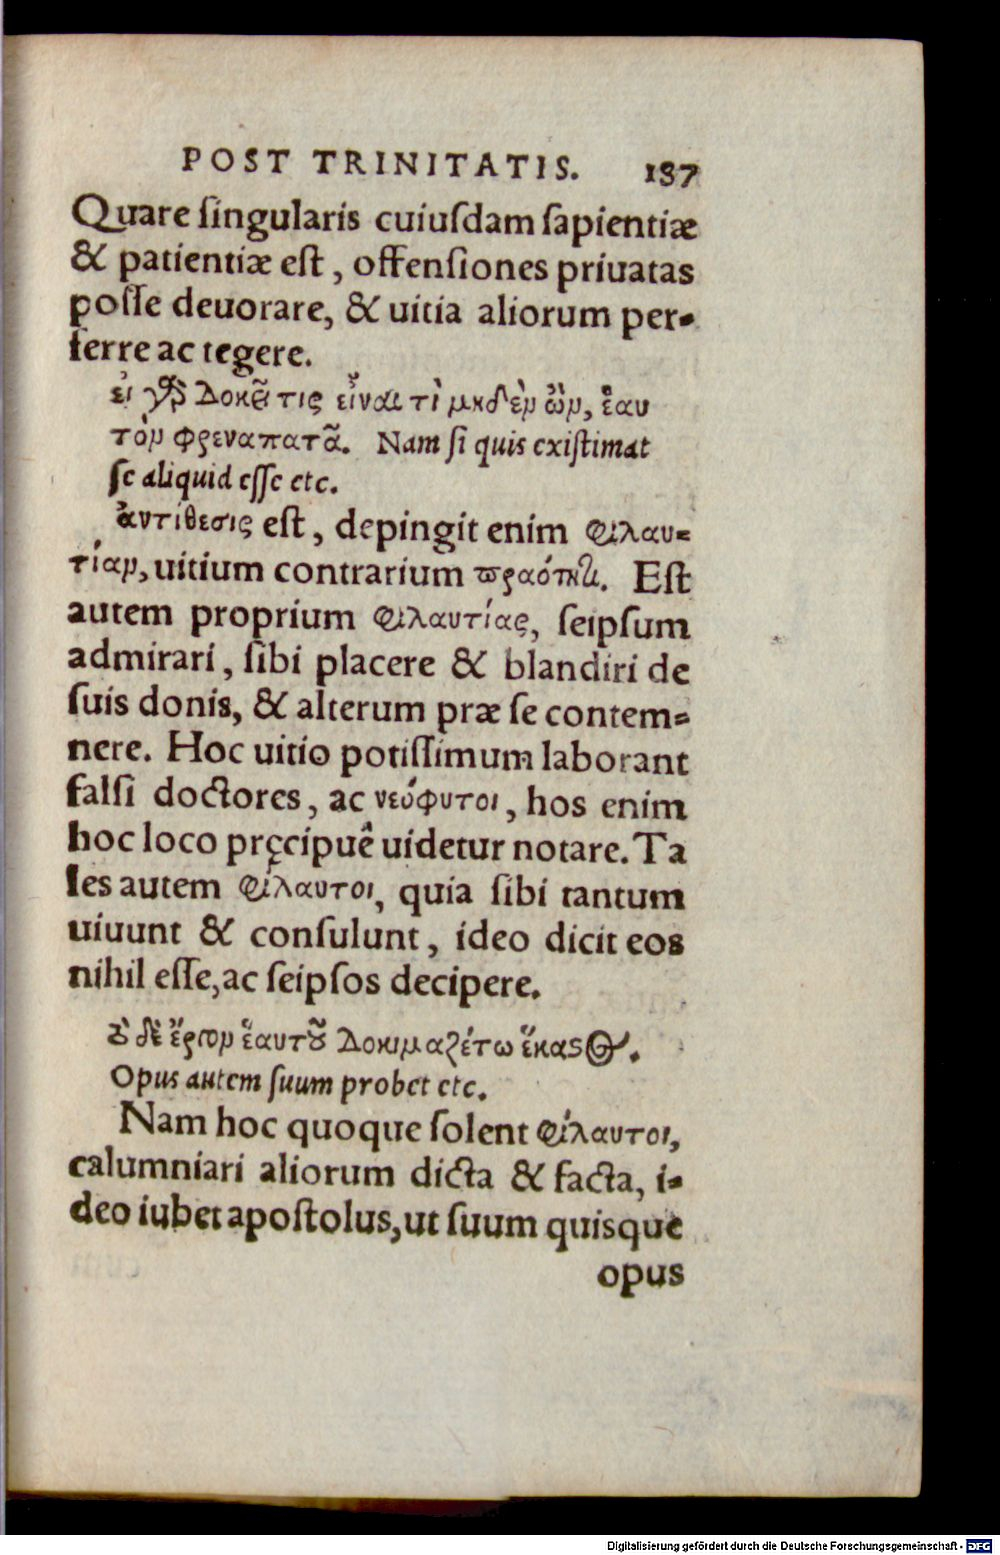 POST TRINITATIS. 187
Quare ſingularis cuiuſdam ſapientiæ
& patientiæ eſt, offenſiones priuatas
poſſe deuorare, & uitia aliorum per-
ferre ac tegere.
εἰ γὰρ δοκεῖ τις εἶναι τὶ μηδὲν ὢν, ἑαυ
τὸν φρεναπατᾶ. Nam ſi quis exiſtimat
ſe aliquid eſſe etc.
ἀντίθεσις eſt, depingit enim φιλαυ-
τίαν, uitium contrarium πραότητι. Eſt
autem proprium φιλαυτίας, ſeipſum
admirari, ſibi placere & blandiri de
ſuis donis, & alterum præ ſe contem-
nere. Hoc uitio potiſſimum laborant
falſi doctores, ac νεόφυτοι, hos enim
hoc loco pręcipuê uidetur notare. Ta
les autem φίλαυτοι, quia ſibi tantum
uiuunt & conſulunt, ideo dicit eos
nihil eſſe, ac ſeipſos decipere.
Τὸ δὲ ἔργον ἑαυτοῦ δοκιμαζέτω ἕκαστος.
Opus autem ſuum probet etc.
Nam hoc quoque ſolent φίλαυτοι,
calumniari aliorum dicta & facta, i-
deo iubet apoſtolus, ut ſuum quisque
opus
Digitalisierung gefördert durch die Deutsche Forschungsgemeinschaft - DFG